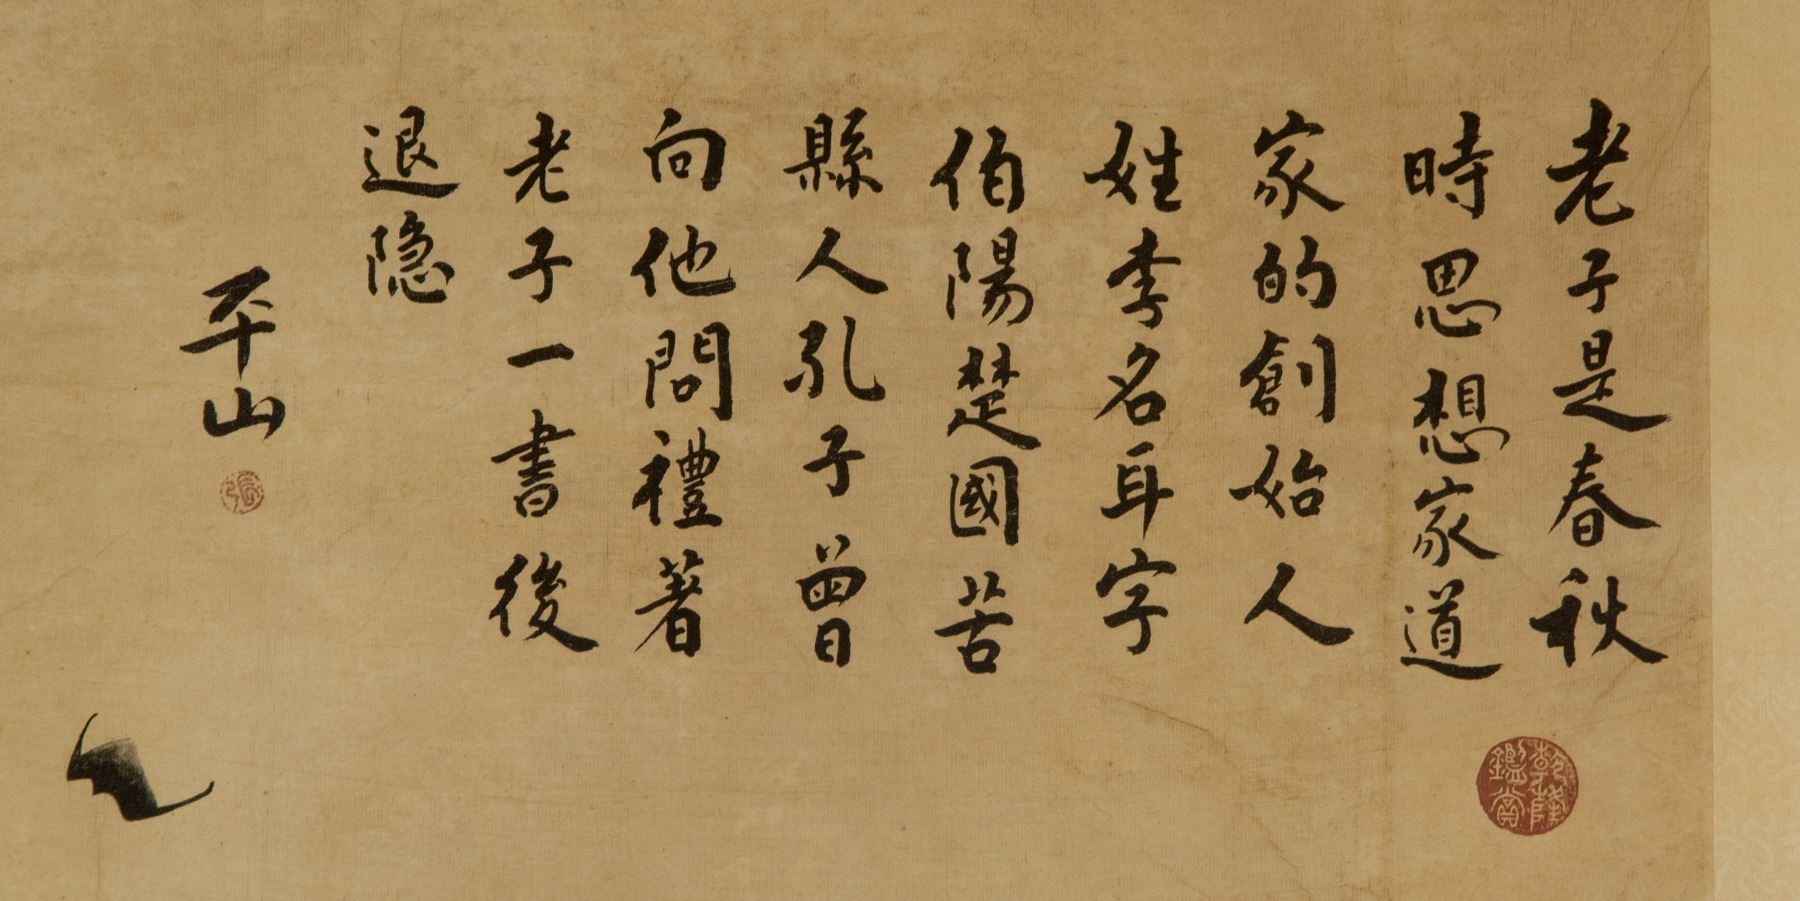 老子是春秋
時思想家道
家的創始人
姓李名耳字
伯陽楚國苦
縣人孔子曾
向他問禮著
老子一書後
退隐
平山
張
乾隆
鑑賞